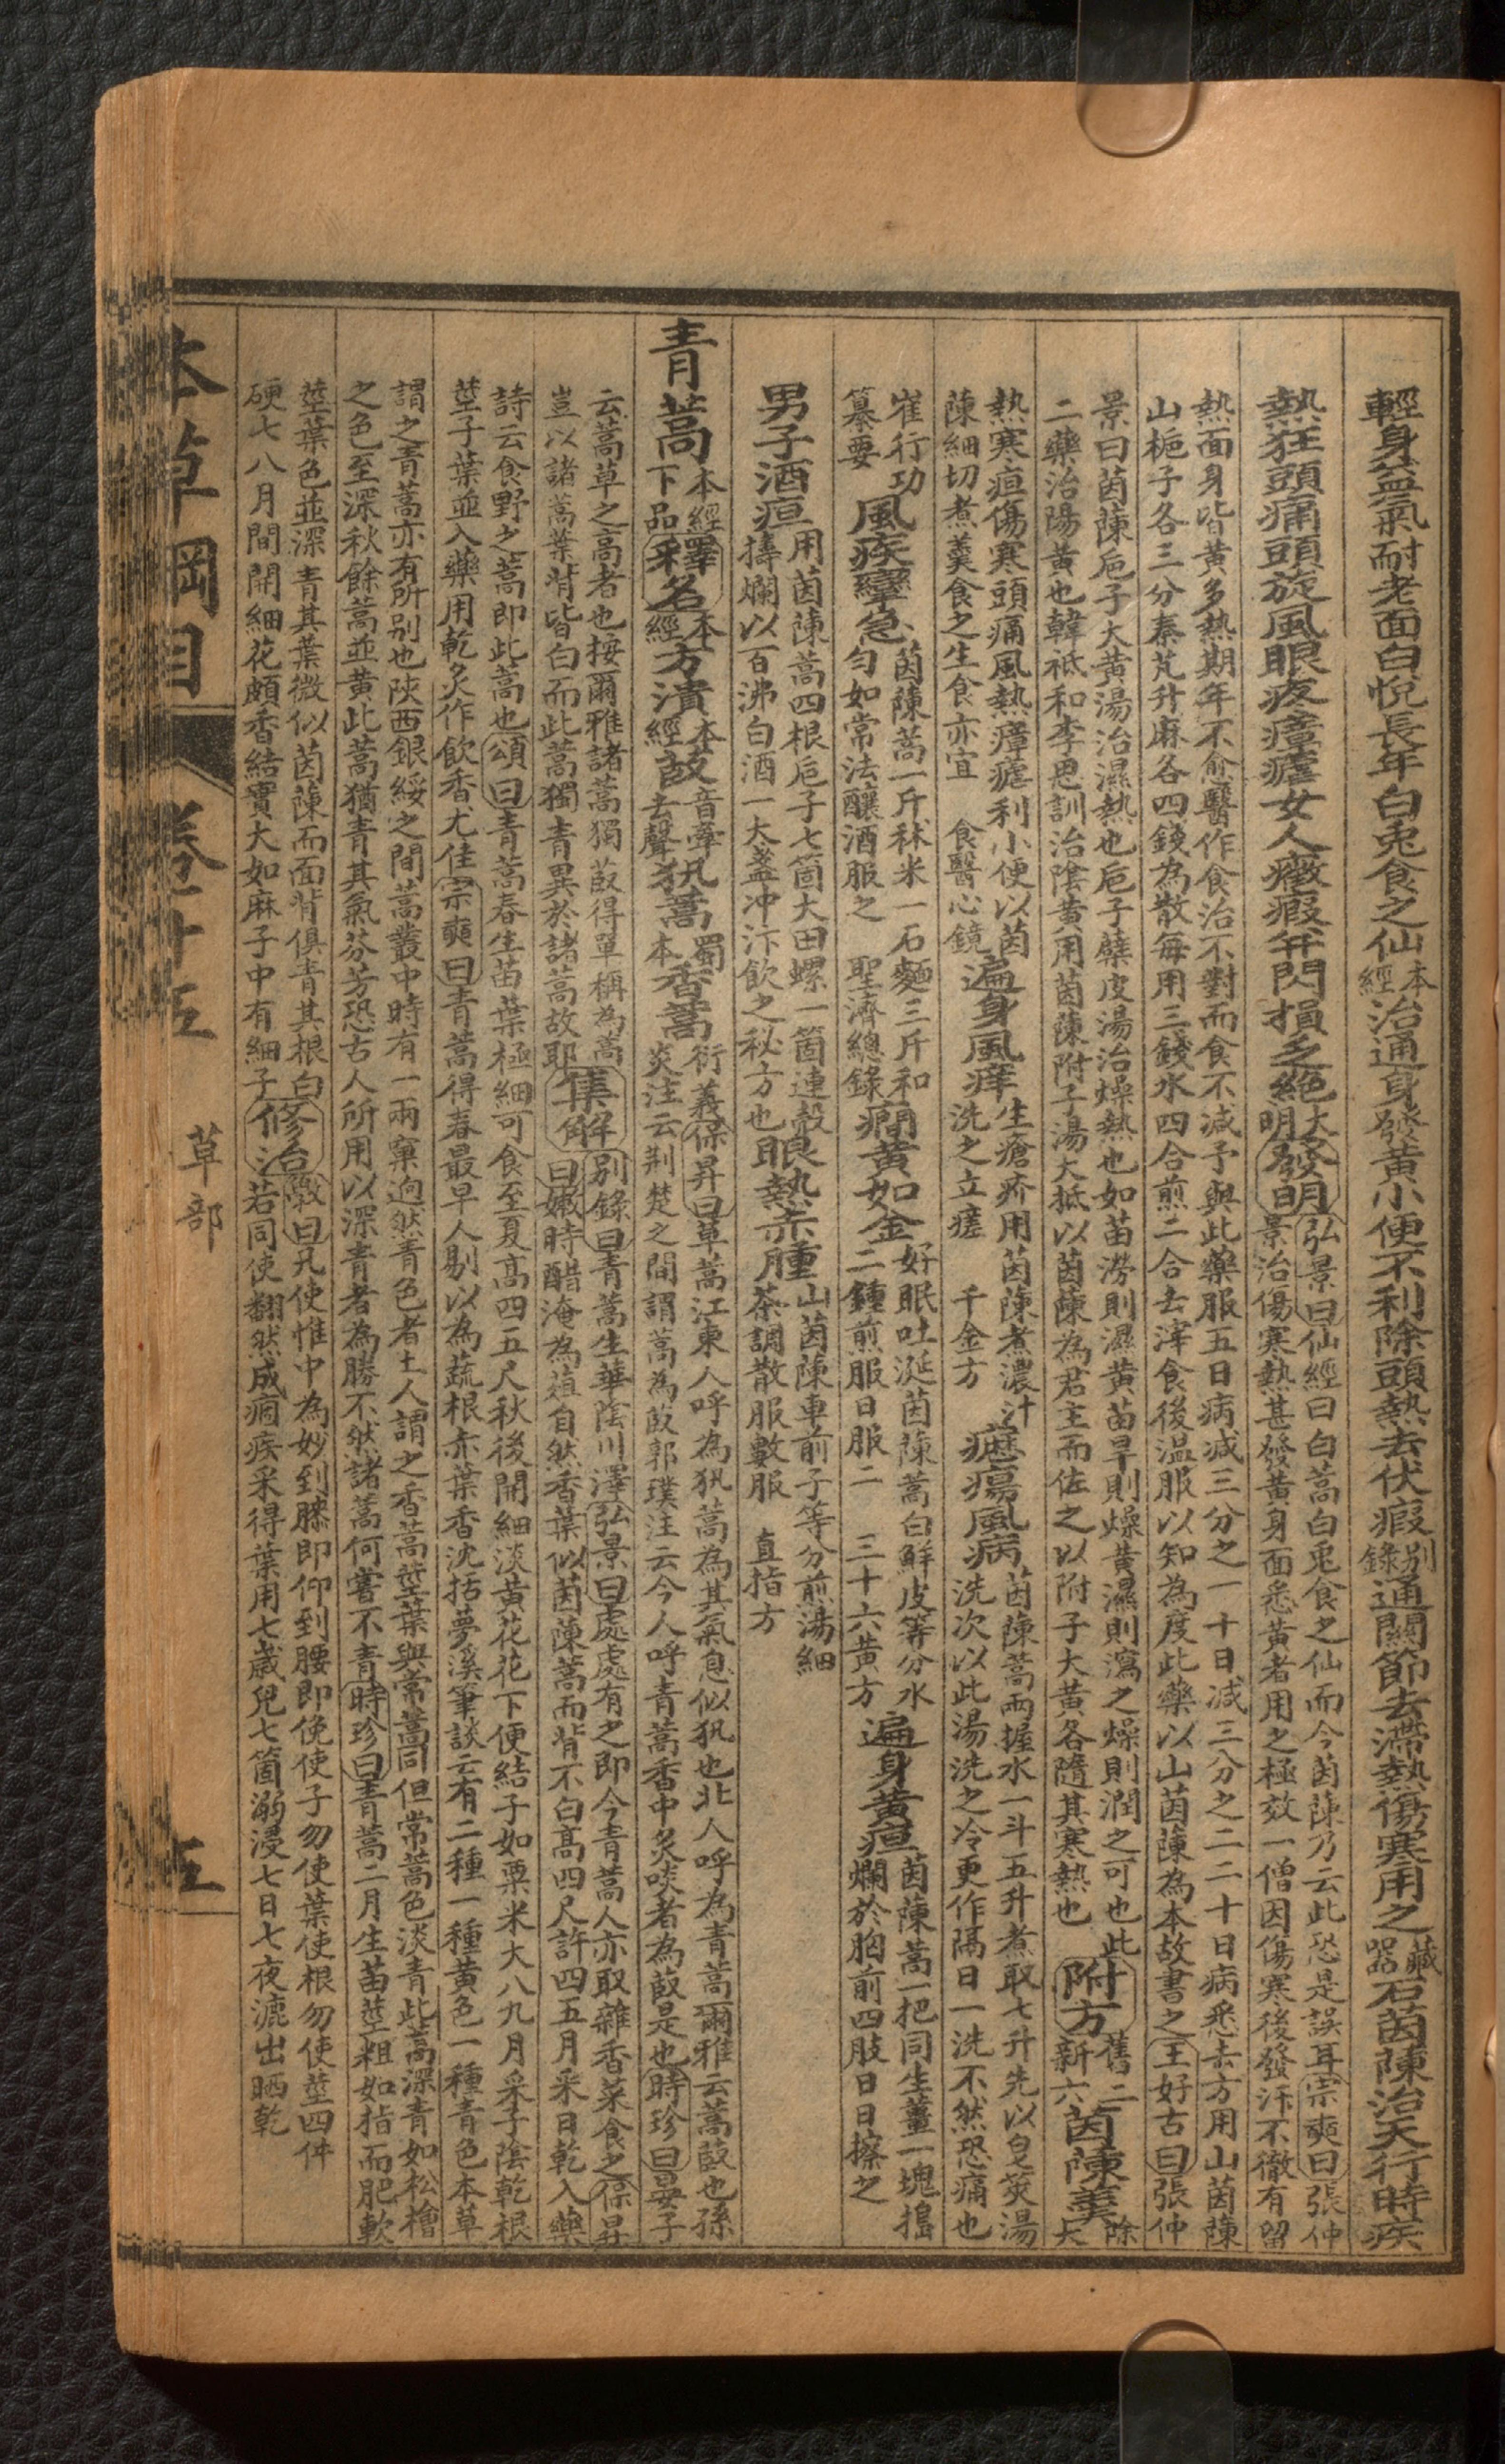 輕身益氣耐老面白悅長年白兎食之仙本經治通身發黃小便不利除頭熱去伏瘕別錄通關節去滯熱傷寒用之藏器石茵蔯治天行時疾
熱狂頭痛頭旋風眼疼瘴瘧女人癥瘕并閃損乏絶大明發明弘景曰仙經曰白蒿白兎食之仙而今茵蔯乃云此恐是誤耳宗奭曰張仲
景治傷寒熱甚發黃身面悉黃者用之極效一僧因傷寒後發汗不徹有留
熱面身皆黃多熱期年不愈醫作食治不對而食不減予與此藥服五日病減三分之一十日減三分之二二十日病悉去方用山茵蔯
山梔子各三分秦艽升麻各四錢為散每用三錢水四合煎二合去滓食後温服以知為度此藥以山茵蔯為本故書之王好古曰張仲
景曰茵蔯卮子大黃湯治濕熱也卮子蘗皮湯治燥熱也如苗澇則濕黃苗旱則燥黃濕則瀉之燥則潤之可也此
二藥治陽黃也韓祗和李思訓治陰黃用茵蔯附子湯大抵以茵蔯為君主而佐之以附子大黃各隨其寒熱也
附方舊二新六茵蔯羹除大
熱寒疸傷寒頭痛風熱瘴瘧利小便以茵
蔯細切煮羹食之生食亦宜 食醫心鏡
遍身風痒生瘡疥用茵蔯煮濃汁洗之立瘥 千金方
癧瘍風病茵蔯蒿兩握水一斗五升煮取七升先以皂莢湯
洗次以此湯洗之冷更作隔日一洗不然恐痛也
崔行功纂要
風疾攣急茵蔯蒿一斤秫米一石麵三斤和匀如常法釀酒服之 聖濟總錄
癎黃如金好眠吐涎茵蔯蒿白鮮皮等分水二鍾煎服日服二 三十六黃方
遍身黃疸茵蔯蒿一把同生薑一塊搗爛於胸前四肢日日擦之
男子酒疸用茵蔯蒿四根卮子七箇大田螺一箇連殻擣爛以百沸白酒一大盞冲汴飲之秘方也
眼熱赤腫山茵蔯車前子等分煎湯細茶調散服數服 直指方
青蒿本經下品釋名本經方潰本經菣音牽去聲䒨蒿蜀本香蒿衍義保昇曰草蒿江東人呼為䒨蒿為其氣息似䒨也北人呼為青蒿爾雅云蒿菣也孫
炎注云荆楚之間謂蒿為菣郭璞注云今人呼青蒿香中炙啖者為菣是也時珍曰晏子
云蒿草之高者也按爾雅諸蒿獨菣得單稱為蒿
豈以諸蒿葉背皆白而此蒿獨青異於諸蒿故耶
集解別錄曰青蒿生華陰川澤弘景曰處處有之即今青蒿人亦取雜香菜食之保昇
曰嫩時醋淹為葅自然香葉似茵蔯蒿而背不白高四尺許四五月采日乾入藥
詩云食野之蒿即此蒿也頌曰青蒿春生苗葉極細可食至夏高四五尺秋後開細淡黃花花下便結子如粟米大八九月采子陰乾根
莖子葉並入藥用乾炙作飲香尤佳宗奭曰青蒿得春最早人剔以為蔬根赤葉香沈括夢溪筆談云有二種一種黃色一種青色本草
謂之青蒿亦有所別也陝西銀綏之間蒿叢中時有一兩窠迥然青色者土人謂之香蒿莖葉與常蒿同但常蒿色淡青此蒿深青如松檜
之色至深秋餘蒿並黃此蒿猶青其氣芬芳恐古人所用以深青者為勝不然諸蒿何嘗不青時珍曰青蒿二月生苗莖粗如指而肥軟
莖葉色並深青其葉微似茵蔯而面背俱青其根白
硬七八月間開細花頗香結實大如麻子中有細子
修治斆曰凡使惟中為妙到膝即仰到腰即俛使子勿使葉使根勿使莖四件
若同使翻然成痼疾采得葉用七歲兒七箇溺浸七日七夜漉出晒乾
本草綱目
卷十五
草部
五